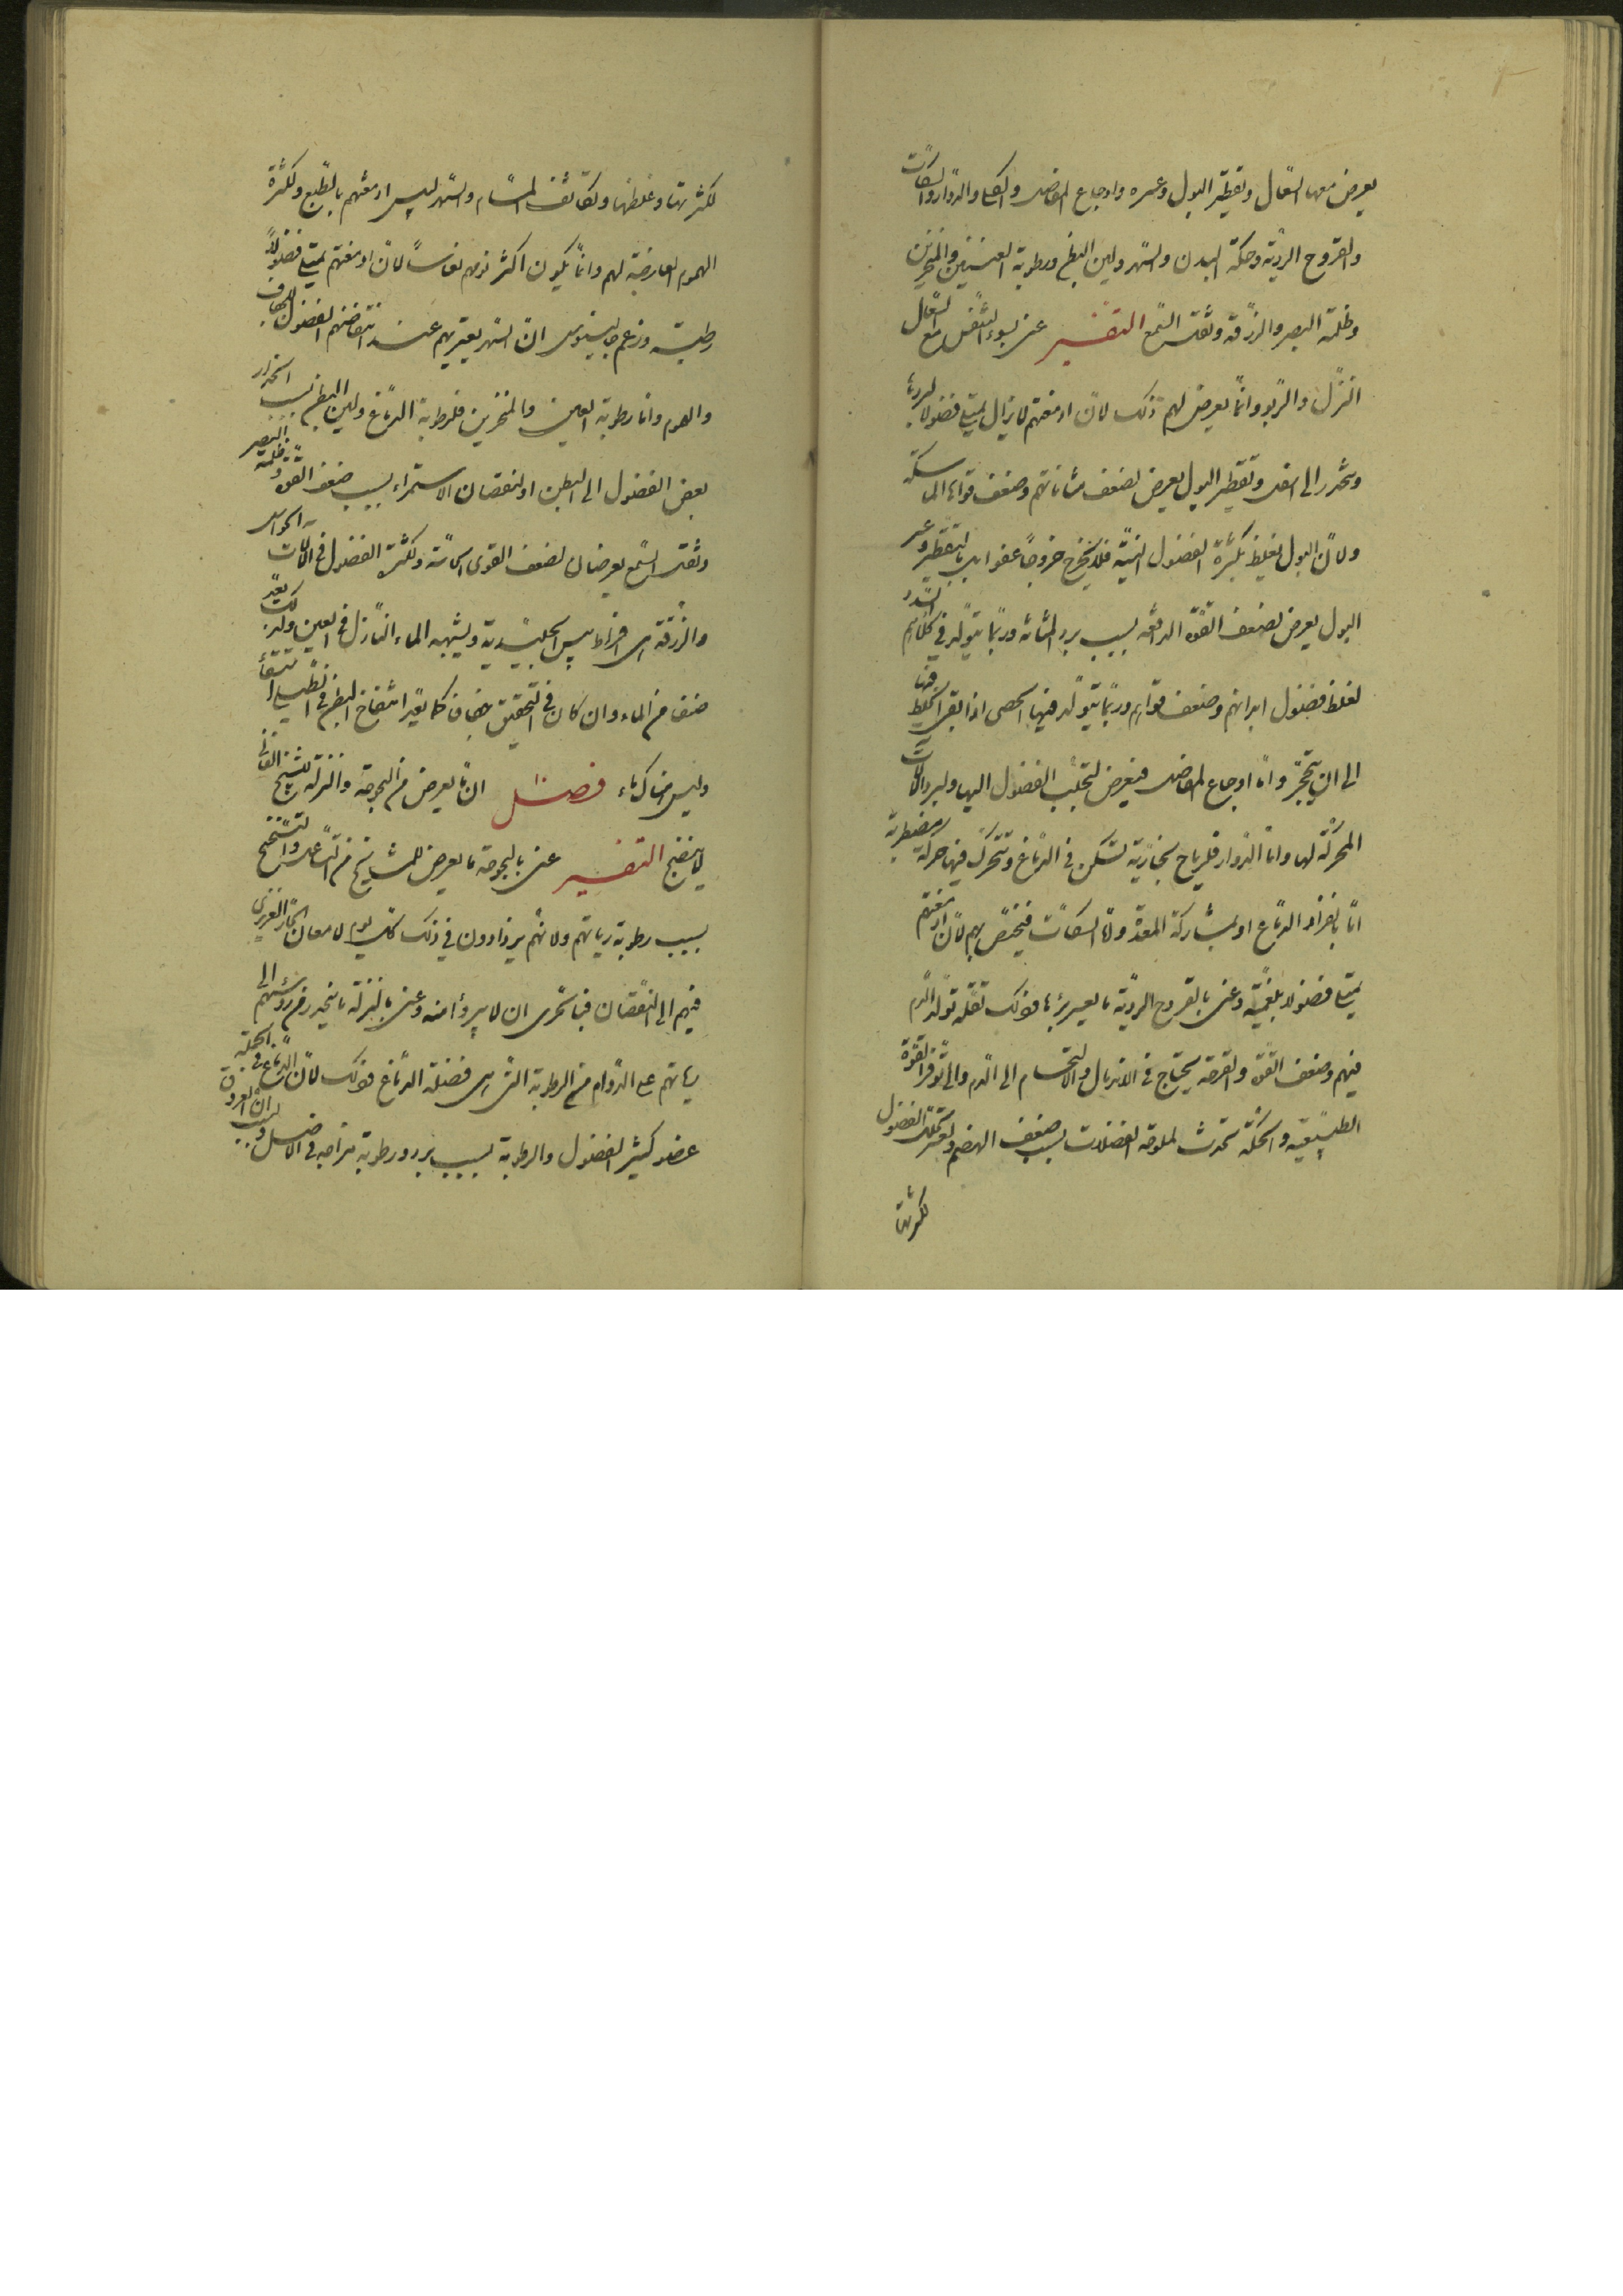 يعرض معها السعال وتقطير البول وعسره واوجاع المفاصل والكلى والدوار والسكات
والقروح الردية وحكة البدن والسهر ولين البطن ورطوبة العينين والمنخرين
وظلمة البصر والزرقة وثقل السمع التفسير عنى بسوء التنفس مع السعال
النزل والربو وانما يعرض لهم ذلك لان ادمغتهم لا يزال يمتلى فضولا لبردها
وينحدر الى اسفل وتقطير البول يعرض لضعف مثاناتهم وضعف قواها الماسكة
ولان البول يغلظ بكثرة الفضول النية فلا يخرج خروجا عفوا بل بالتقطير وعسر
البول يعرض لضعف القوة الدافعة بسبب برد المثانة وربما يتولد في كلاهم السدد
لغلظ فضول ابدانهم وضعف قواهم وربما يتولد فيها الحصى اذا بقى الخلط فيها
الى ان يتحجر واما اوجاع المفاصل فيعرض لتحلب الفضول اليها ولبرد الآلات
المحركة لها واما الدوار فلرياح بخارية تسكن في الدماغ وتتحرك فيها حركة مضطربة
اما بانفراد الدماغ او بمشاركة المعدة واما السكات فيختص بهم لان ادمغتهم
يمتلى فضولا بلغمية وعنى بالقروح الردية ما يعسر برؤها وذلك لقلة تولد الدم
فيهم وضعف القوة والقرحة يحتاج في الاندمال والالتحام الى الدم والى توفر القوة
الطبيعية والحكة تحدث لملوحة الفضلات بسبب ضعف الهضم وتعسر تحلل الفضول
لكثرتها
لكثرتها وغلظها وتكاثف المسام والسهر ليبس ادمغتهم بالطبع ولكثرة
الهموم العارضة لهم وانما يكون اكثر نومهم نعاسا لان ادمغتهم يمتلى فضولا
رطبة وزعم جالينوس ان السهر يعتريهم عند انتقاضهم الفضول
والهموم واما رطوبة العين والمنخرين فلرطوبة الدماغ ولين البطن بسبب انحدار
بعض الفضول الى البطن او لنقصان الاستمراء بسبب ضعف القوة وظلمة البصر
وثقل السمع يعرضان لضعف القوى الحساسة وكثرة الفضول في آلات الحواس
والزرقة هى افراط يبس الجليدية ويشبهه الماء النازل في العين ولذلك يعد
صنف من الماء وان كان في التحقيق جفاف كما يعد انتفاخ البطن في
وليس هناك ماء فصل ان ما يعرض من البحوحة والنزلة للشيخ الفانى
لا ينضج التفسير عنى بالبحوحة ما يعرض للمشايخ من السعال والتنحنح
بسبب رطوبة رياتهم ولانهم يزدادون في ذلك كل يوم لامعان الحار الغريزى
فيهم الى النقصان فبالحرى ان لا يبرؤا منه وعنى بالنزلة ما ينحدر من رؤسهم الى
رياتهم على الدوام من الرطوبة التى هى فضلة الدماغ وذلك لان الدماغ في الجملة
عضو كثير الفضول والرطوبة بسبب برد ورطوبة مزاجه في الاصل